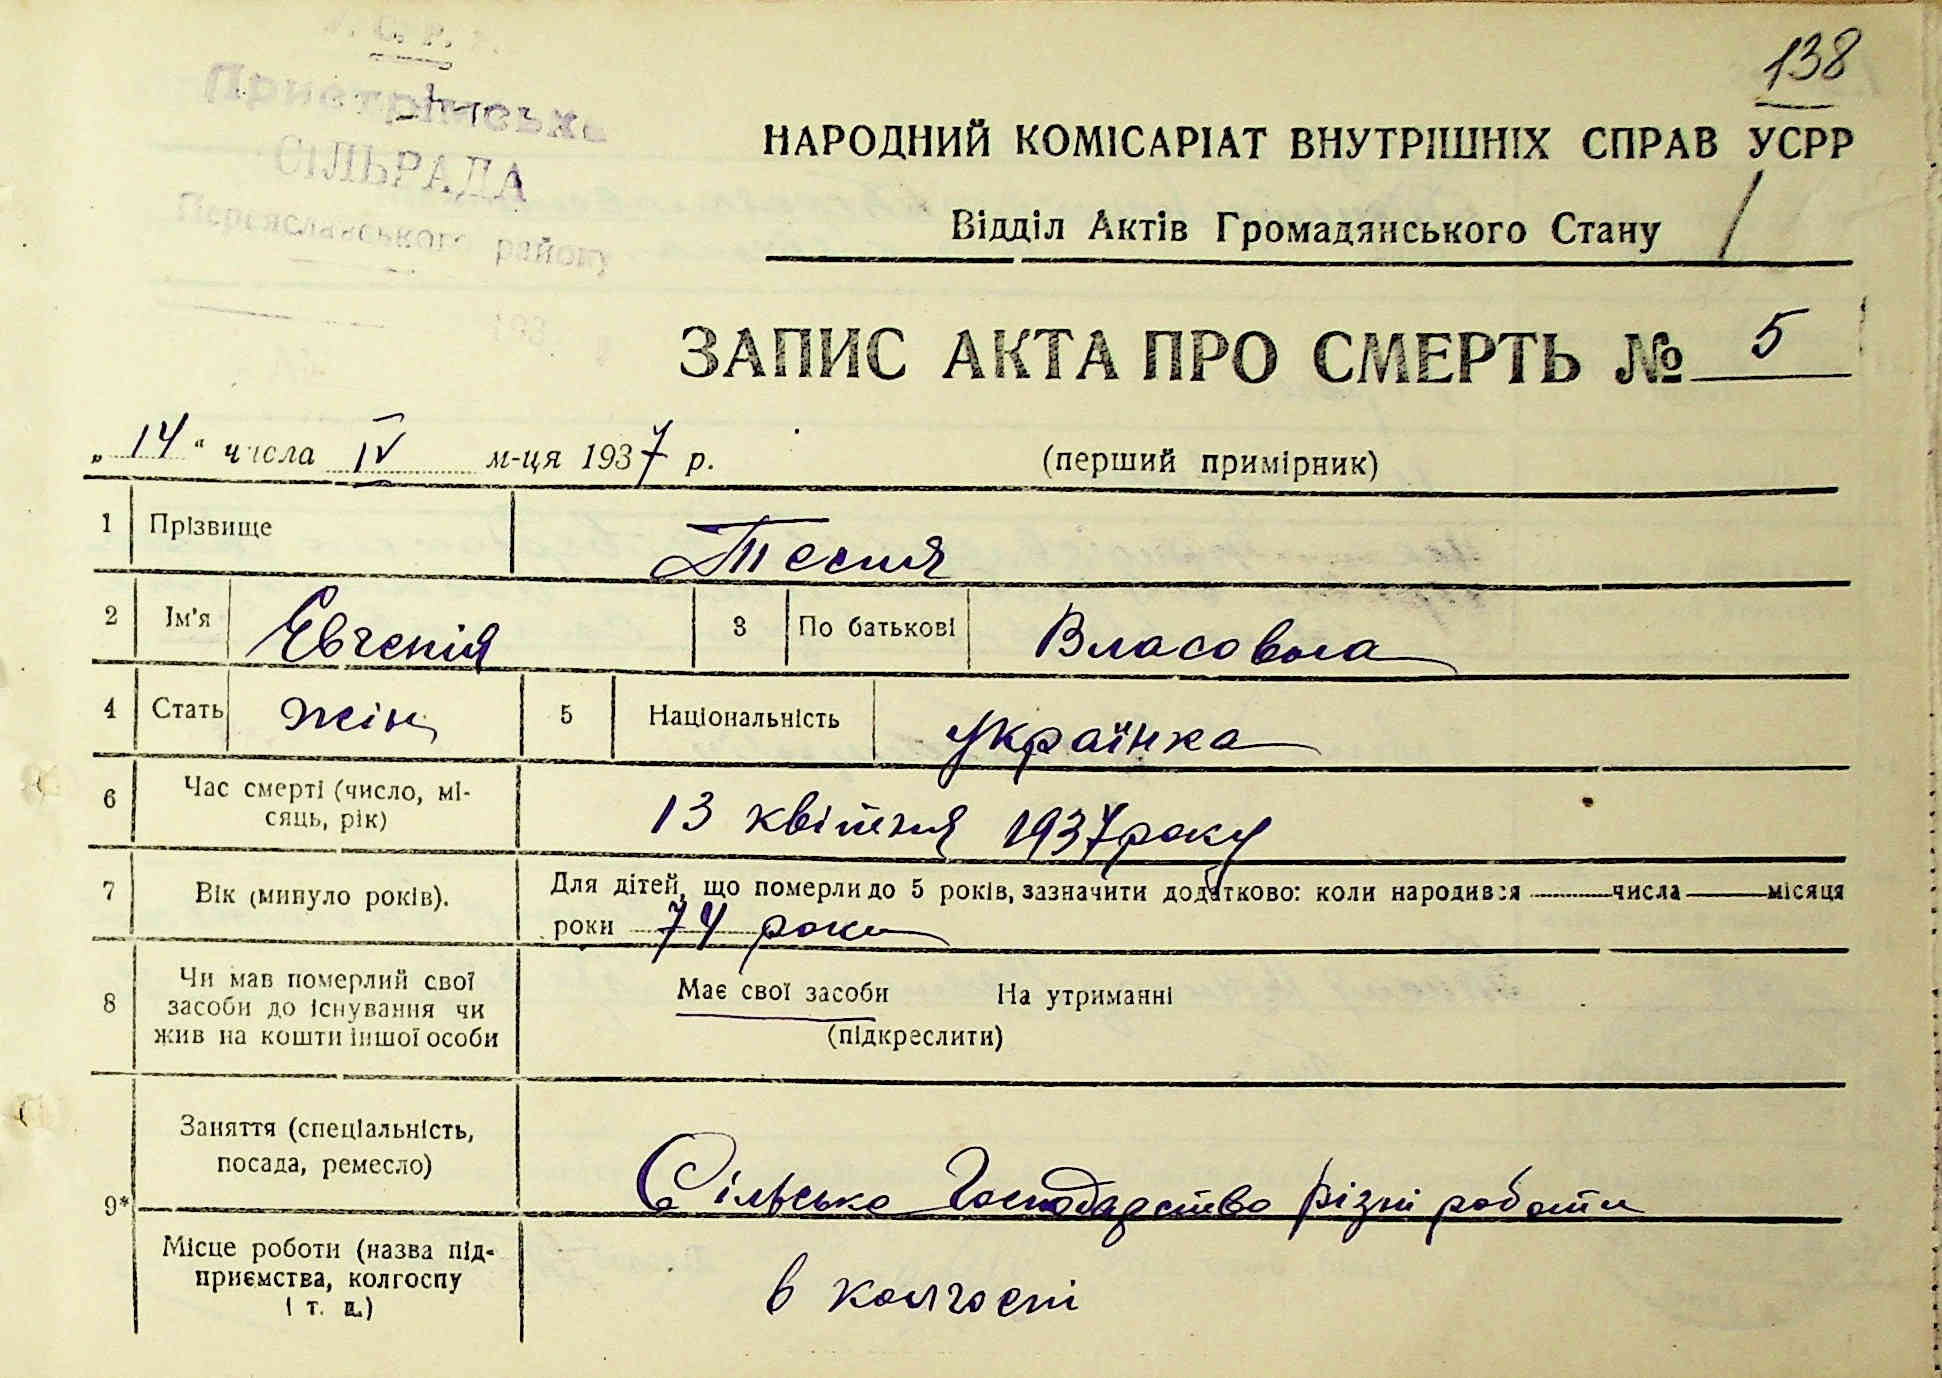 138
У. С. Р. Р.
Пристрімська
СІЛЬРАДА
Переяславського району
193
НАРОДНИЙ КОМІСАРІАТ ВНУТРІШНІХ СПРАВ УСРР
Відділ Актів Громадянського Стану
ЗАПИС АКТА ПРО СМЕРТЬ № 5
„14“ числа IV м-ця 1937 р. (перший примірник)
1 Прізвище Тесля
2 Ім'я Євгенія 3 По батькові Власовна
4 Стать жін 5 Національність українка
6 Час смерті (число, мі-
сяць, рік) 13 квітня 1937 року
7 Вік (минуло років). Для дітей, що померли до 5 років, зазначити додатково: коли народився числа місяця
роки 74 роки
8 Чи мав померлий свої
засоби до існування чи
жив на кошти іншої особи
Має свої засоби На утриманні
(підкреслити)
9* Заняття (спеціальність,
посада, ремесло) Сільське Господарство різні роботи
Місце роботи (назва під-
приємства, колгоспу
і т. д.) в колгоспі